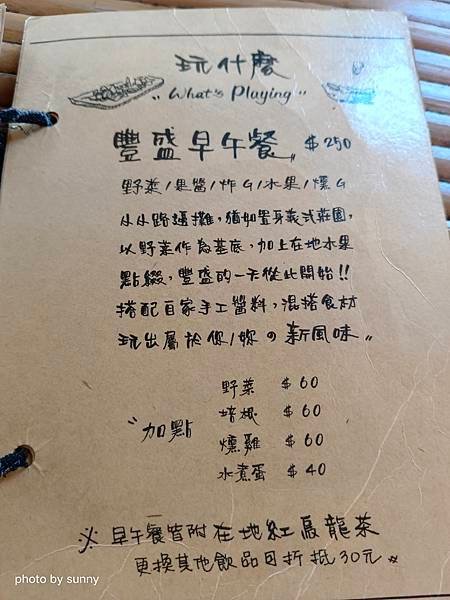 玩什麼
"What's Playing"
豐盛早午餐 $250
野菜/果醬/炸G/水果/燻G
小小路邊攤，猶如置身義式莊園，
以野菜作為基底，加上在地水果
點綴，豐盛的一天從此開始!!
搭配自家手工醬料，混搭食材
玩出屬於你/妳の新風味。
野菜 $60
培根 $60
"加點
燻雞 $60
水煮蛋 $40
※ 早午餐皆附在地紅烏龍茶
更換其他飲品可折抵30元※
photo by sunny